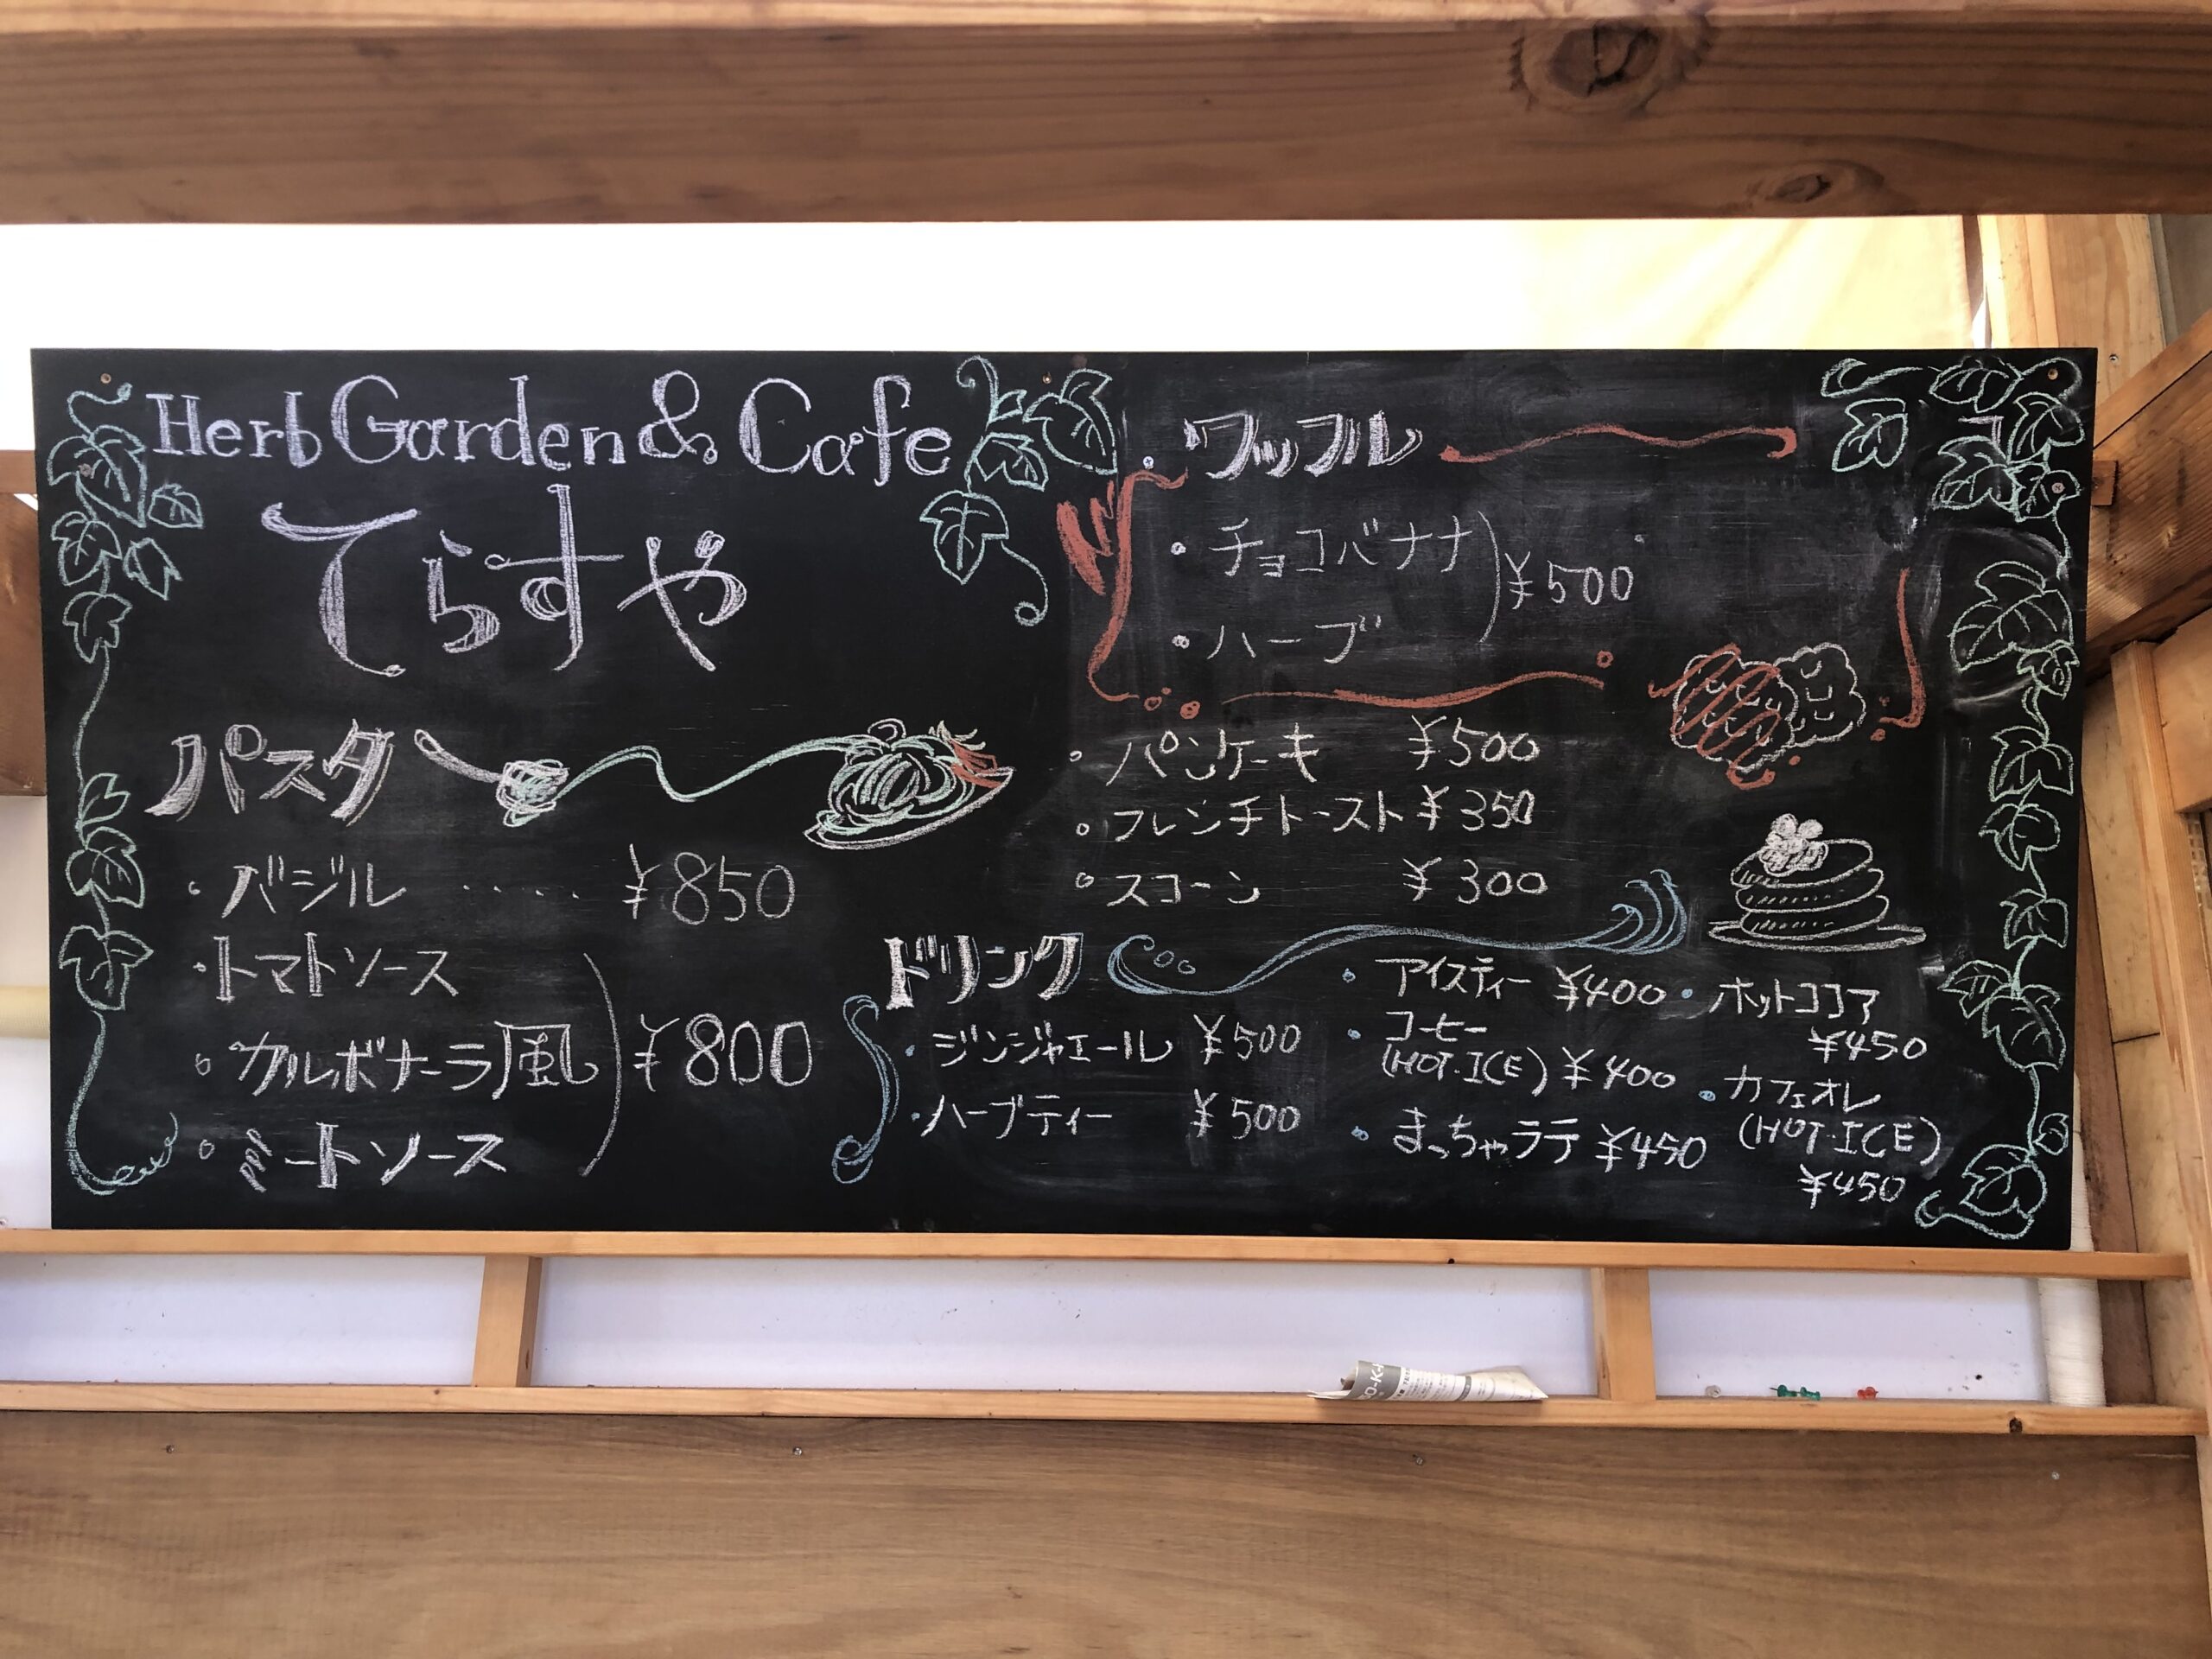 Herb Garden & Cafe
てらすや
パスタ
・バジル ····· ¥850
・トマトソース
・カルボナーラ風
・ミートソース
¥800
・ワッフル
・チョコバナナ
・ハーブ
¥500
・パンケーキ ¥500
・フレンチトースト ¥350
・スコーン ¥300
ドリンク
・ジンジャエール ¥500
・ハーブティー ¥500
・アイスティー ¥400
・コーヒー
(HOT・ICE) ¥400
・まっちゃラテ ¥450
・ホットココア
¥450
・カフェオレ
(HOT・ICE)
¥450